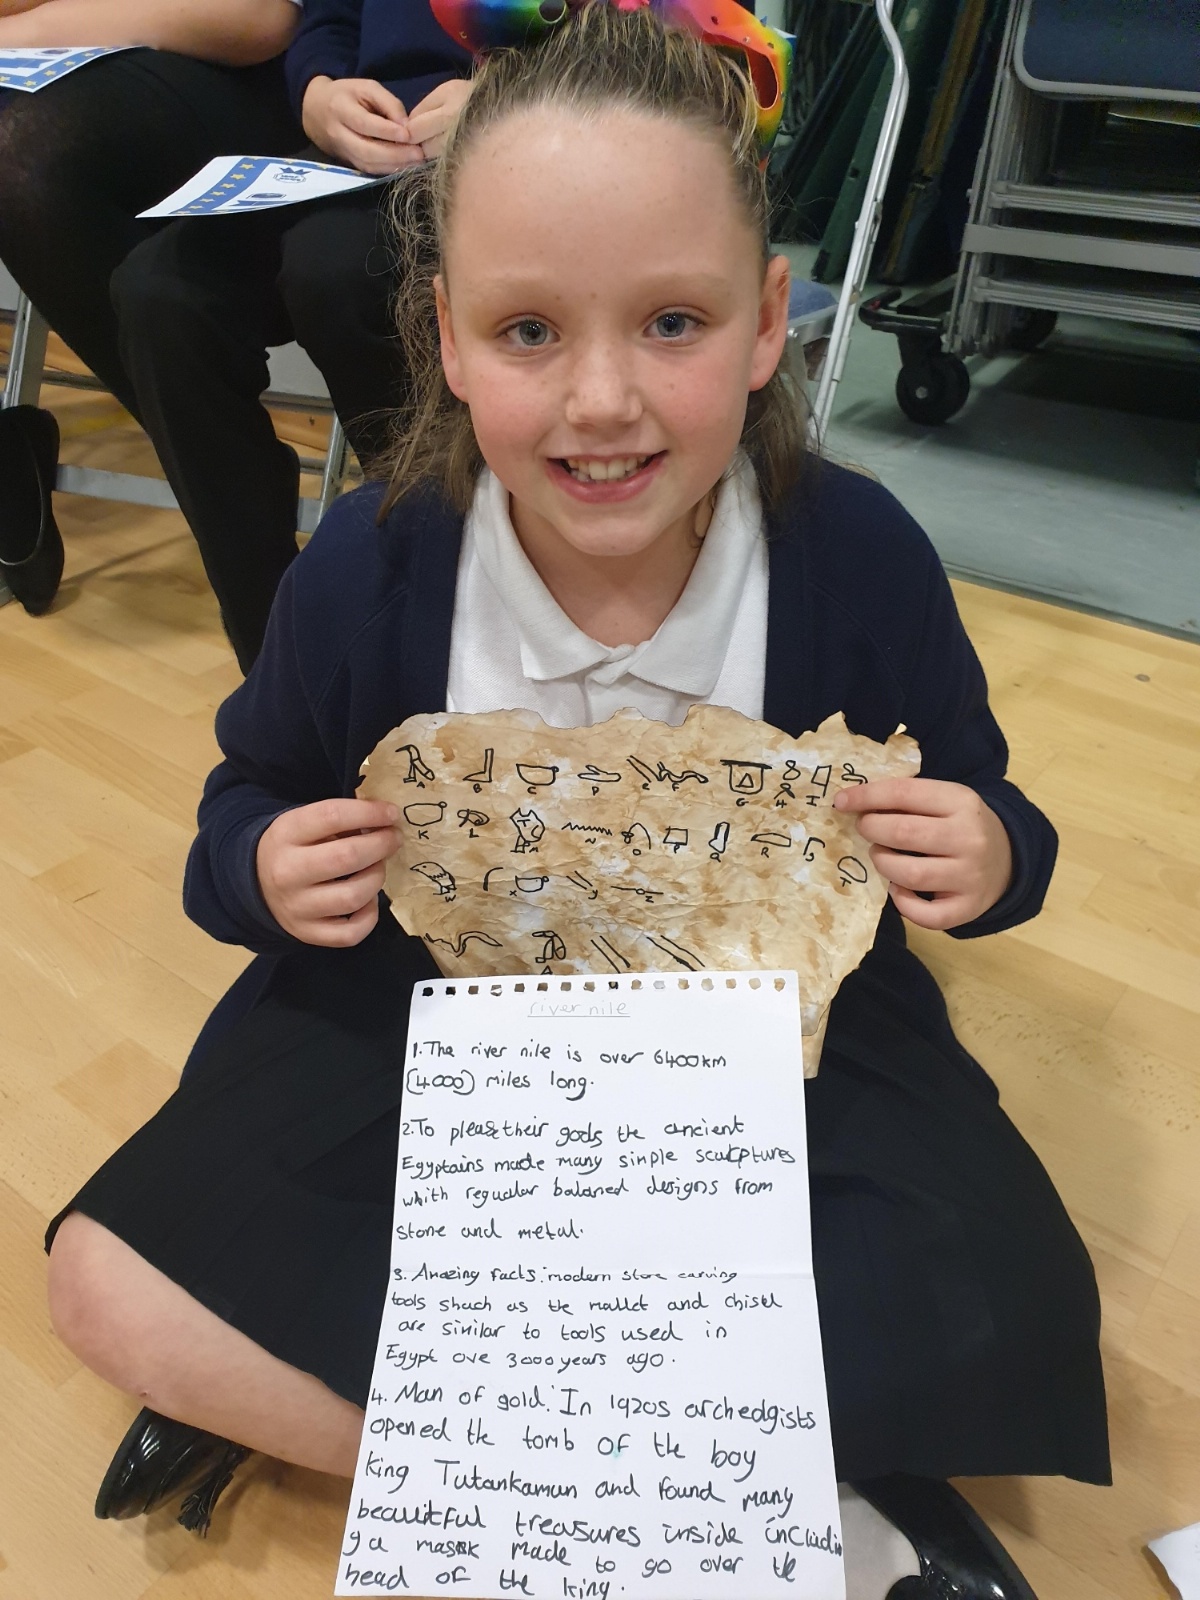 A B C D E F G H I
K L M N O P Q R S T
W X Y Z
A
river nile
1. The river nile is over 6400km
(4000) miles long.
2. To please their gods the ancient
Egyptains made many simple sculptures
whith regualar balaned designs from
stone and metal.
3. Amazing facts: modern stone carving
tools shuch as the mallet and chisel
are similar to tools used in
Egypt ove 3000 years ago.
4. Man of gold: In 1920s archedgists
opened the tomb of the boy
king Tutankamun and found many
beautful treasures inside includin
g a mask made to go over the
head of the king.